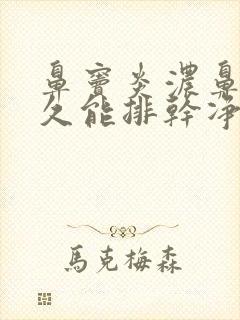 鼻竇炎濃鼻
久能排幹凈
馬克梅森